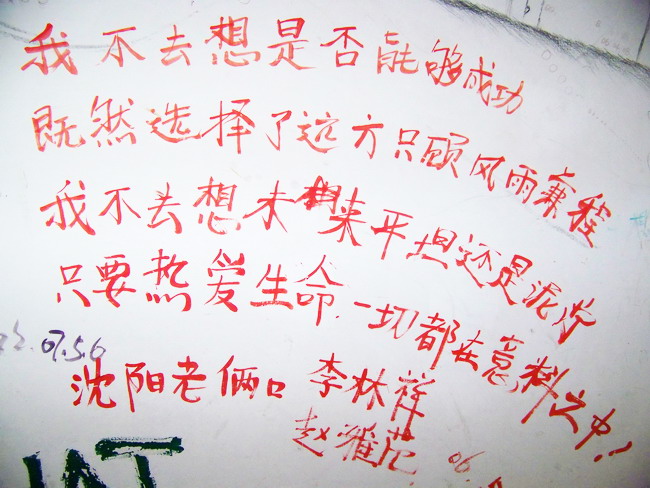 我不去想是否能够成功
既然选择了远方只顾风雨兼程
我不去想未来平坦还是泥泞
只要热爱生命一切都在意料之中！
07.5.6
沈阳老俩口 李林祥
赵雅范
06.